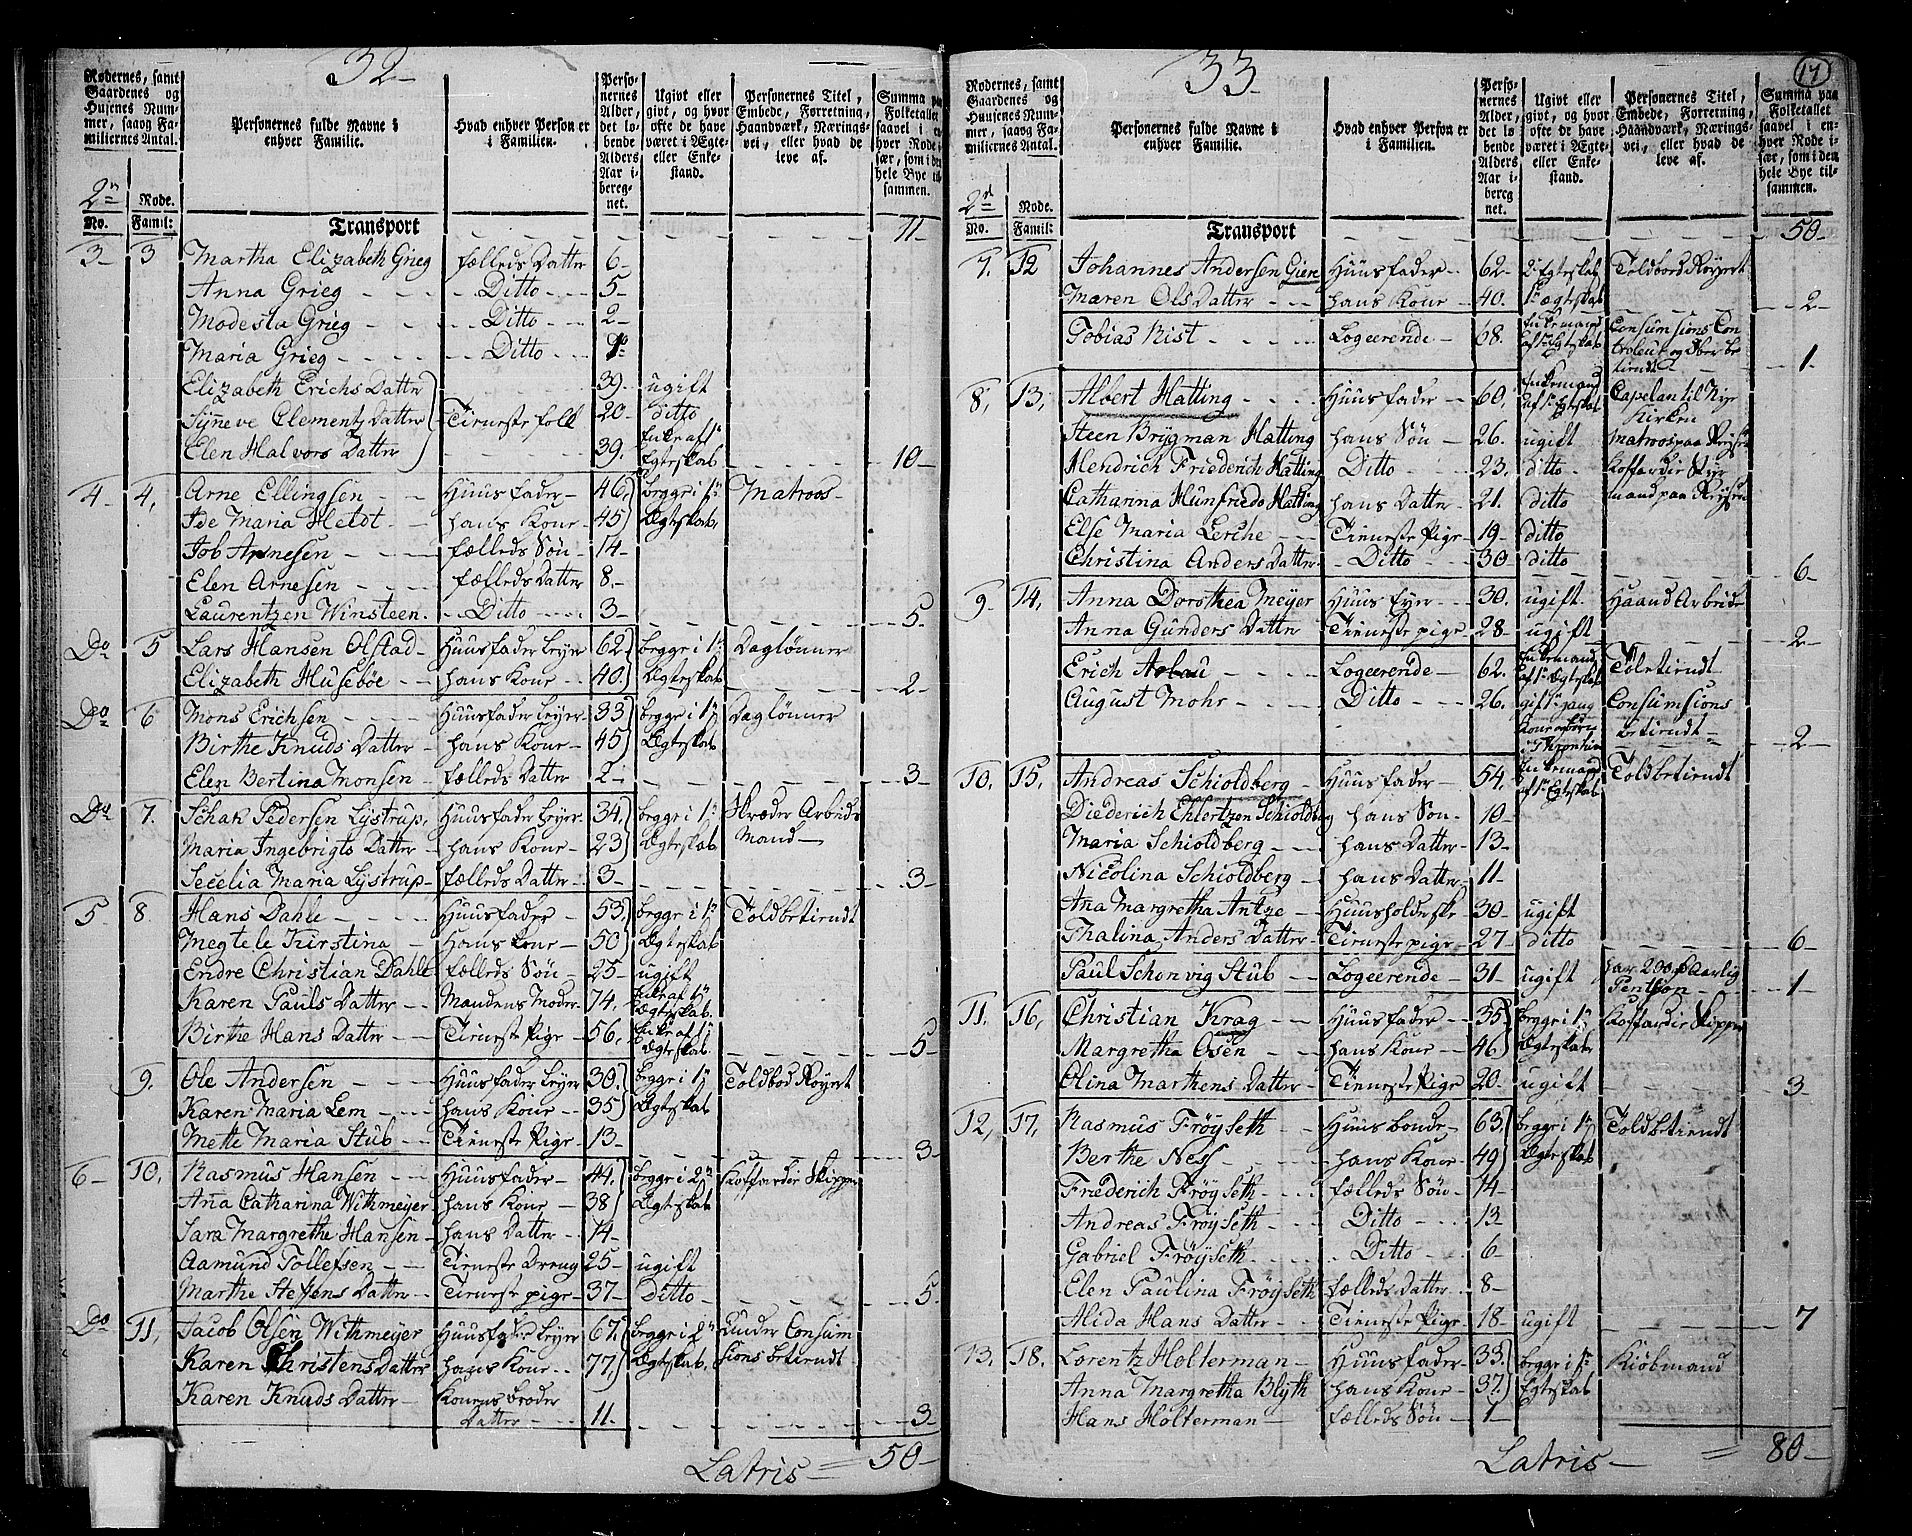 32
Rodernes, samt Gaardenes og Husenes Nummer, saavog Familiernes Antal.
Personernes fulde Navne i enhver Familie.
Hvad enhver Person er i Familien.
Personernes Alder, det løbende Alders Aar iberegnet.
Ugivt eller givt, og hvor ofte de have været i Ægte- eller Enkestand.
Personernes Titel, Embede, Forretning, Haandværk, Næringsvei, eller hvad de leve af.
Summa paa Folketallet saavel i enhver Rode især, som i den hele Bye tilsammen.
2n Rode.
No. Famil: Transport 11
3 3 Martha Elizabeth Grieg fælleds Datter 6
Anna Grieg Ditto 5
Modesta Grieg Ditto 2
Maria Grieg Ditto
Elizabeth Erichs Datter 39. ugift
Sÿneve Clementz Datter Tieneste folk 20 ditto
Elen Halvors Datter 39. Enke af 1 Egteskab 10
4 4, Arne Ellingsen Huusfader 46, begge i 1 Matros
Ide Maria Heldt hans Kone 45 Ægteskab,
Job Arnesen fælleds Søn 14
Elen Arnesen fælleds Datter 8
Laurentzen Winsteen Ditto 3 5.
Do 5 Lars Hansen Olstad Huusfader Leyer 62 begge i 1 Daglønner
Elizabeth Husebøe hans Kone 40 Ægteskab 2
Do 6 Mons Erichsen Huusfader Leyer 33 begge i 1 Daglønner
Birthe Knuds Datter hans Kone 45 Ægteskab
Elen Bertina Monsen fælleds Datter 2 3
Do 7. Schak Pedersen Lystrup, Huusfader Leyer 34, begge i 1 Skræder Arbeids
Maria Ingebrigts Datter hans Kone 23 Ægteskab Mand
Secelia Maria Lystrup fælleds Datter 3 3
5 8. Hans Dahle Huusfader 53. begge i 1 Toldbetiendt
Megtele Kirstina Hans Kone 50 Ægteskab
Endre Christian Dahle fælleds Søn 25 ugift
Karen Pauls Datter Mandens Moder 74, Enke af 1 Ægteskab.
Birthe Hans Datter Tieneste Pige 56, Enke af 1 Ægteskab 5
9. Ole Andersen Huusfader Leyer 30. begge i 1 Toldbod Røyert
Karen Maria Lem hans Kone 35 Ægteskab
Mette Maria Stub Tieneste Pige 13 3
6 10, Rasmus Hansen Huusfader 44, begge i 2 Koffardie Skipper
Ana Catharina Withmeyer hans Kone 38 Ægteskab
Sara Margrethe Hansen hans Datter 14
Aamund Tollefsen Tieneste Dreng 25 ugift
Marthe Steffens Datter Tieneste pige 37 Ditto 5.
Do 11, Jacob Olsen Withmeyer Huusfader Leyer 67. begge i 2 Under Consum
Karen Christens Datter hans Kone 77, Ægteskab. sions betiendt
Karen Knuds Datter Konens broder Datter 11. 3
Latris = 50
33
17
Rodernes, samt Gaardenes og Huusenes Nummer, saavog Familiernes Antal.
Personernes fulde Navne i enhver Familie.
Hvad enhver Person er i Familien.
Personernes Alder, det løbende Alders Aar iberegnet.
Ugivt eller givt, og hvor ofte de have været i Ægte- eller Enkestand.
Personernes Titel, Embede, Forretning, Haandværk, Næringsvei, eller hvad de leve af.
Summa paa Folketallet saavel i enhver Rode især, som i den hele Bye tilsammen.
2d Rode.
No. Famil: Transport 50
7. 12 Johannes Andersen Gien Huusfader 62 2 Egteskab Toldbods Røyert
Maren Ols Datter hans Kone 40. 1 Ægteskab 2
Tobias Rist Logeerende 68. Enkemand af 1 Egteskab Consumsions Controleur og Ober betiendt 1
8, 13, Albert Hatting Huusfader 60, Enkemand af 1 Egteskab Capelan til Nye Kirken
Steen Brÿgman Hatting hans Søn 26. ugift Matros paa Reysen
Hendrich Friederich Hatting Ditto 23. ditto Koffardie Styr
Catharina Hunfriede Hatting hans Datter 21. ditto mand paa Reysen
Else Maria Lerche Tieneste Pige 19 ditto
Christina Anders Datter Ditto 30 ditto 6
9. 14, Anna Dorothea Meyer Huus Eyer 30. ugift Haand Arbeide
Anna Gunders Datter Tieneste pige 28 ugift 2
Erich Logeerende 62. Enkemand af 1 Ægteskab Toldbetiendt
August Mohr Ditto 26. gift 1 gang Consumsions
Trondhiem betiendt 2
10, 15, Andreas Schioldberg Huusfader 54, Enkemand af 1 Egteskab Toldbetiendt
Diederich Ehlertzen Schioldberg hans Søn 10
Maria Schioldberg hans Datter 13
Nicolina Schioldberg hans Datter 11
Ana Margretha Antze Huusholderske 30 ugift
Thalina Anders Datter Tieneste pige 27 ditto 6
Paul Schonvig Stub Logeerende 31 ugift har 200 Aarlig Pention 1
11, 16, Christian Krag Huusfader 35 begge i 1 Koffardie Skipper
Margretha Osen hans Kone 46 Ægteskab
Olina Marthens Datter Tieneste Pige 20 ugift 3
12, 17, Rasmus Frøÿseth Huusbonde 63, begge i 1 Toldbetiendt
Berthe Ness hans Kone 49 Ægteskab
Friederich Frøÿseth fælleds Søn 14
Andreas Frøÿseth Ditto 13
Gabriel Frøÿseth Ditto 6
Elen Paulina Frøÿseth fælleds Datter 8
Alida Hans Datter Tieneste Pige 18 ugift 7
13. 18. Lorentz Holterman Huusfader 33. begge i 1 Kiøbmand
Anna Margretha Blÿth hans Kone 37. Egteskab
Hans Holterman fælleds Søn 1
Latris = 80